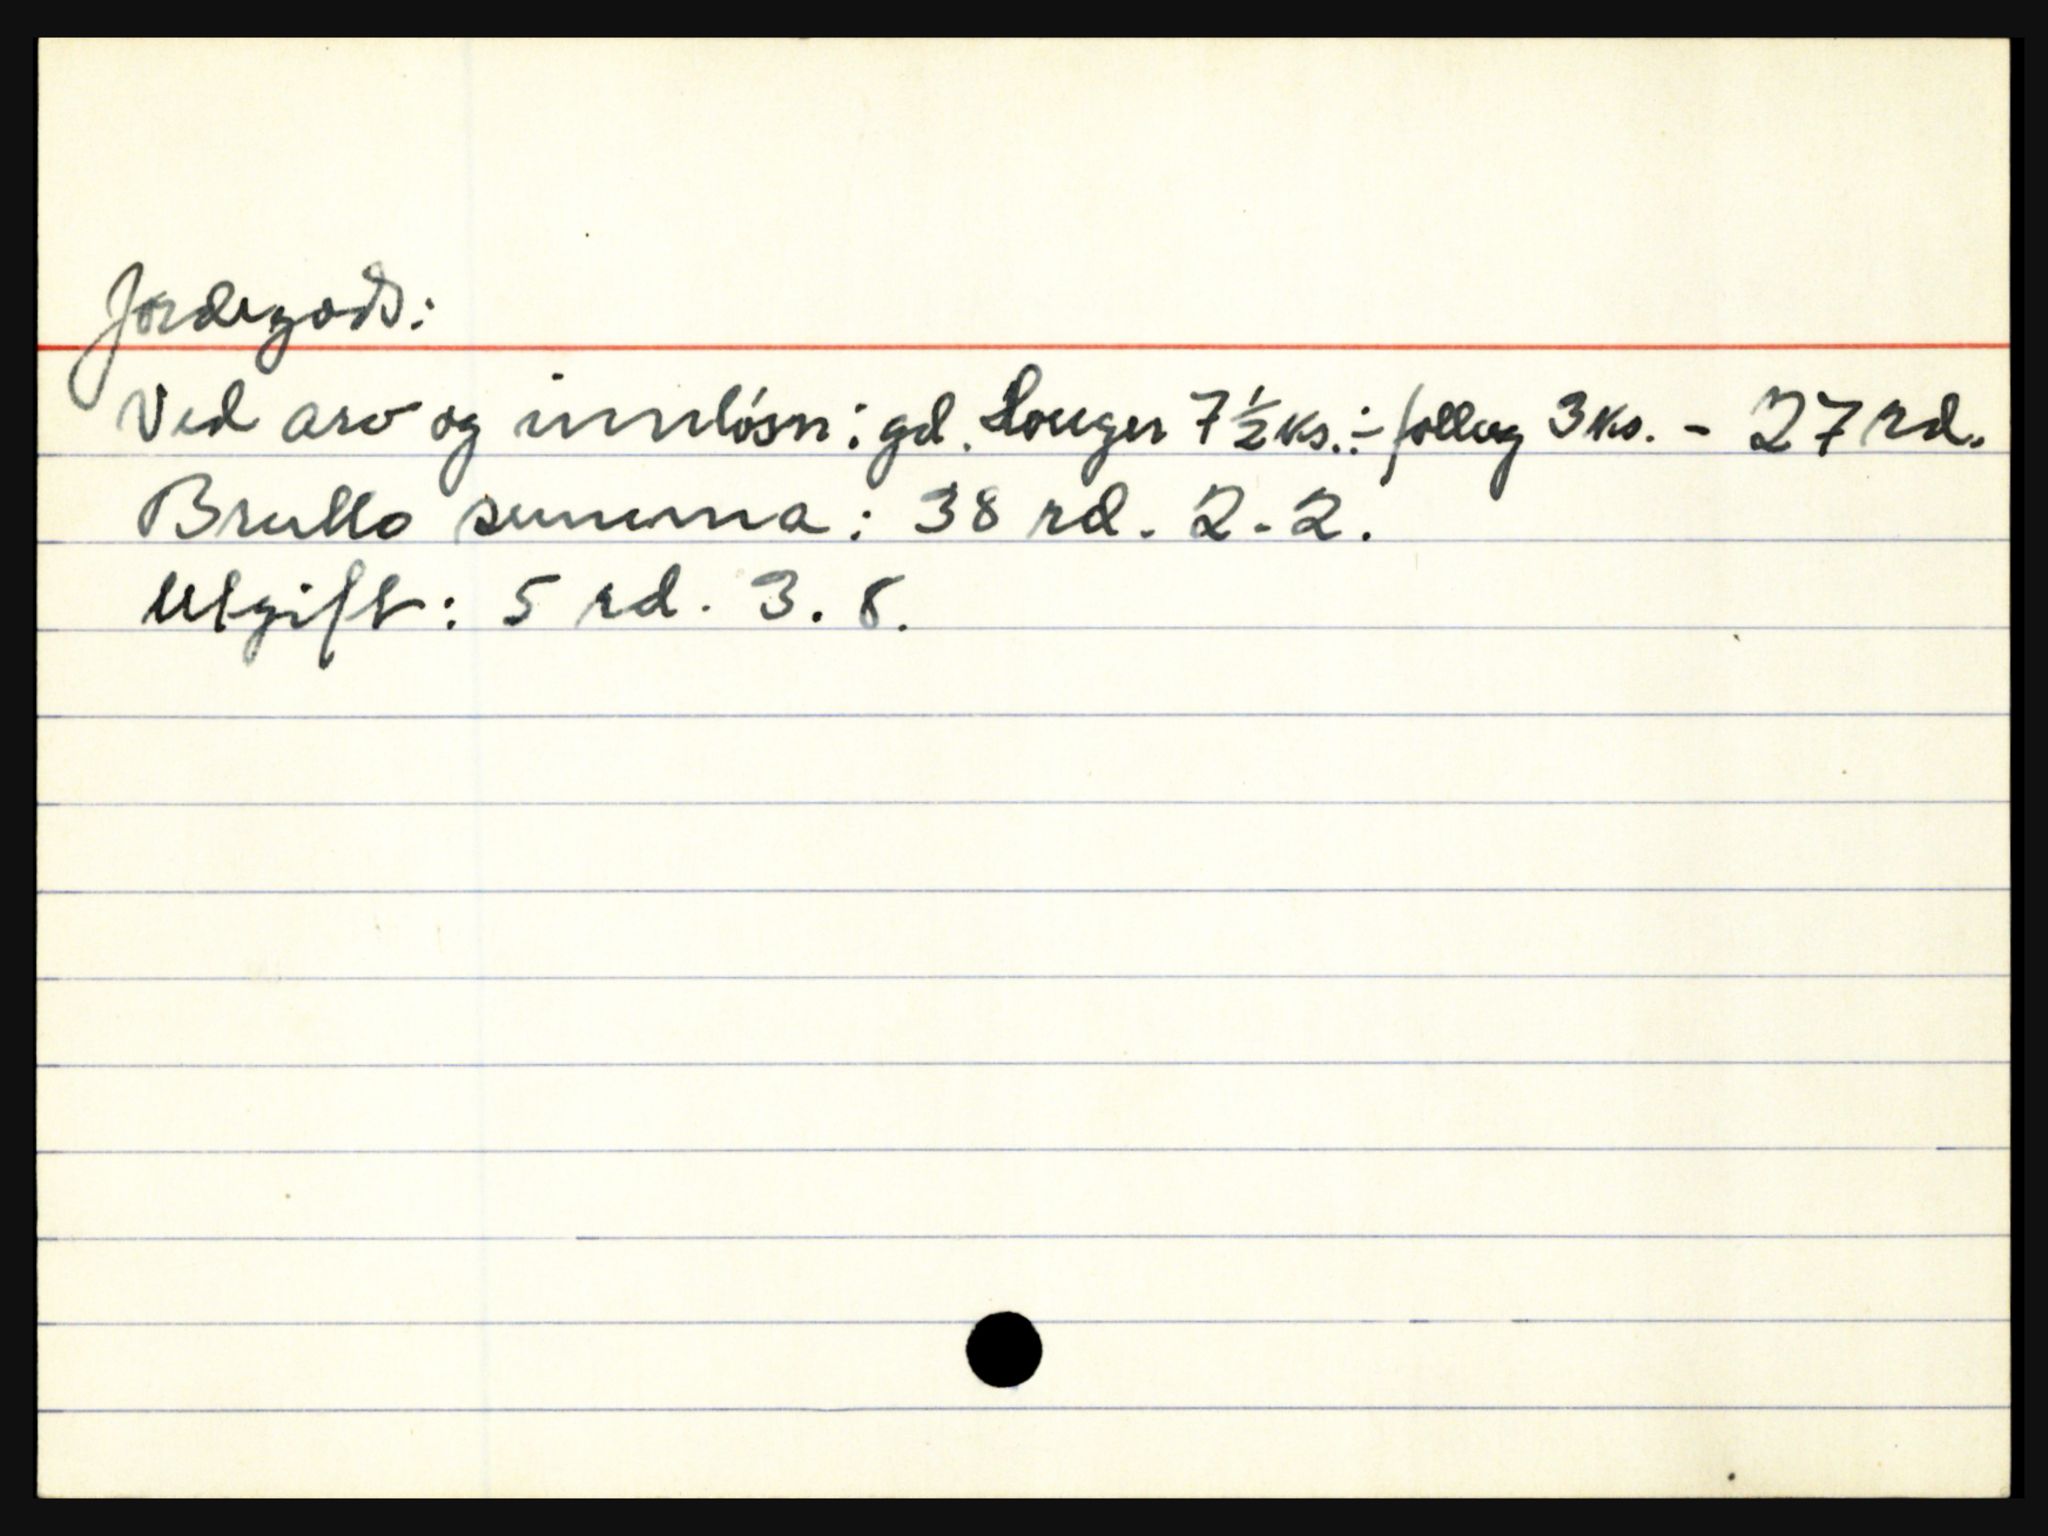 Jordegods:
Ved arv og innløsn: gd. Houger 7 1/2 ks. :- follug 3 ks. - 27 rd.
Brutto summa: 38 rd. 2-2.
Utgift: 5 rd. 3. 8.